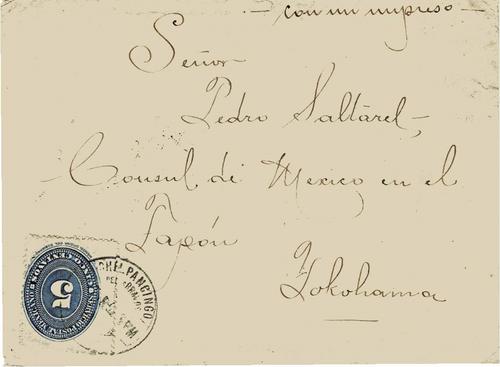 — con un impreso —
Señor
Pedro Saltarel,
Consul de Mexico en el
Japón
Yokohama
CHILPANCINGO
5
CINCO CENTAVOS